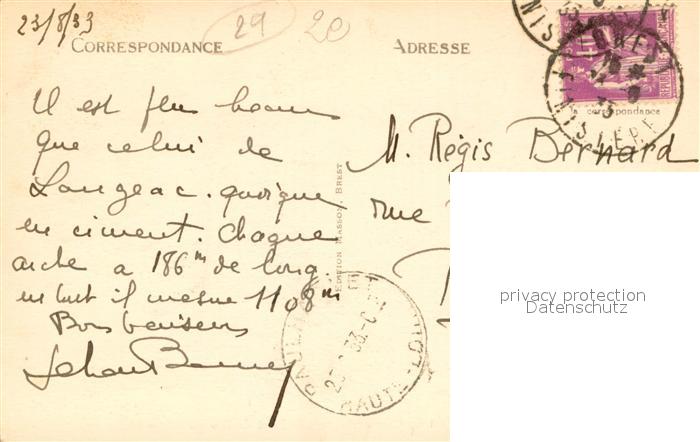 23/8/33
29
20
CORRESPONDANCE
ADRESSE
Il est plus beau
que celui de
Langeac. quoique
en ciment. Chaque
arche a 186m de long.
en tout il mesure 1108m
Bons baisers
M. Régis Bernard
rue
EDITION MASSON, BREST
la correspondance
FINISTERE
HAUTE-LOIRE
privacy protection
Datenschutz